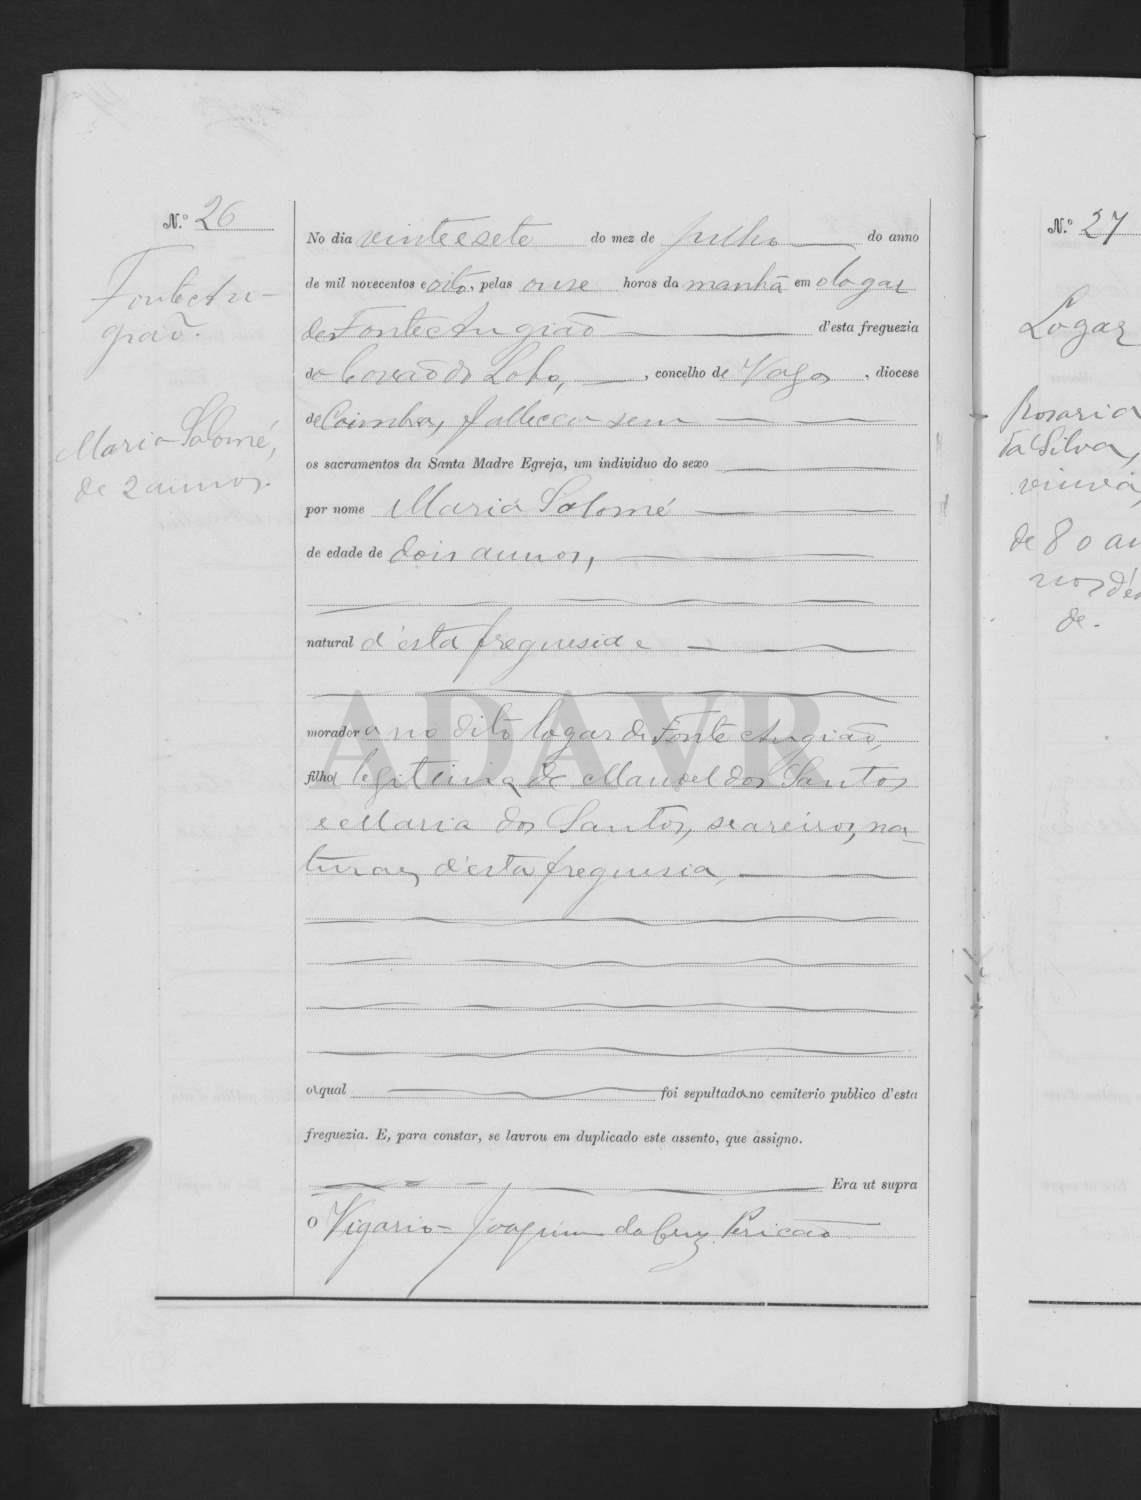 N.º 26
Fonte An-
gião.
Maria Salomé,
de 2 annos.
No dia vinte e sete do mez de julho do anno
de mil novecentos e oito, pelas onse horas da manhã em o logar
de Fonte Angião d'esta freguezia
do Covão do Lobo, concelho de Vagos, diocese
de Coimbra, falleceu sem
os sacramentos da Santa Madre Egreja, um individuo do sexo
por nome Maria Salomé
de edade de dois annos,
natural d'esta freguesia e
moradora no dito logar de Fonte Angião,
filha legitima de Manoel dos Santos
e Maria dos Santos, seareiros, na-
turaes d'esta freguesia,
o qual foi sepultado no cemiterio publico d'esta
freguezia. E, para constar, se lavrou em duplicado este assento, que assigno.
Era ut supra
O Vigario - Joaquim da Cruz Pericão
ADAVR
N.º 27
Logar
Rosaria
da Silva,
viuva,
de 80 an
nos d'e
de.